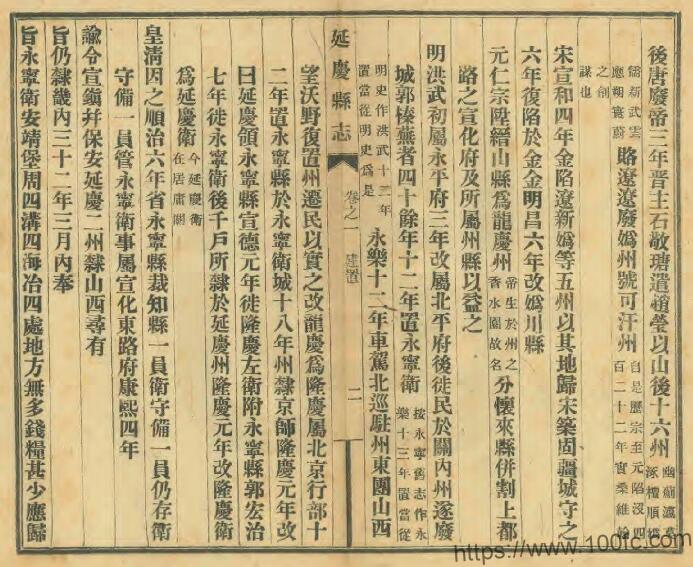 後唐廢帝三年晉主石敬瑭遣趙瑩以山後十六州 幽薊瀛莫涿檀順媯
儒新武雲應朔寰蔚 賂遼遼廢媯州號可汗州 自是歷宗至元陷沒四百二十二年實桑維翰
之創謀也
宋宣和四年金陷遼新媯等五州以其地歸宋築固疆城守之
六年復陷於金金明昌六年改媯川縣
元仁宗陞縉山縣為龍慶州 帝生於州之香水園故名 分懷來縣併割上都
路之宣化府及所屬州縣以益之
明洪武初屬永平府三年改屬北平府後徙民於關內州遂廢
城郭榛蕪者四十餘年十二年置永寧衛 按永寧舊志作永樂十三年置當從
明史作洪武十三年置當從明史為是 永樂十二年車駕北巡駐州東團山西
延慶縣志 卷之一 建置 二
望沃野復置州遷民以實之改龍慶為隆慶屬北京行部十
二年置永寧縣於永寧衛城十八年州隸京師隆慶元年改
曰延慶領永寧縣宣德元年徙隆慶左衛附永寧縣郭宏治
七年徙永寧衛後千戶所隸於延慶州隆慶元年改隆慶衛
為延慶衛 今延慶衛在居庸關
皇清因之順治六年省永寧縣裁知縣一員衛守備一員仍存衛
守備一員管永寧衛事屬宣化東路府康熙四年
諭令宣鎮并保安延慶二州隸山西尋有
旨仍隸畿內三十二年三月內奉
旨永寧衛安靖堡周四溝四海冶四處地方無多錢糧甚少應歸
https://www.100fc.com